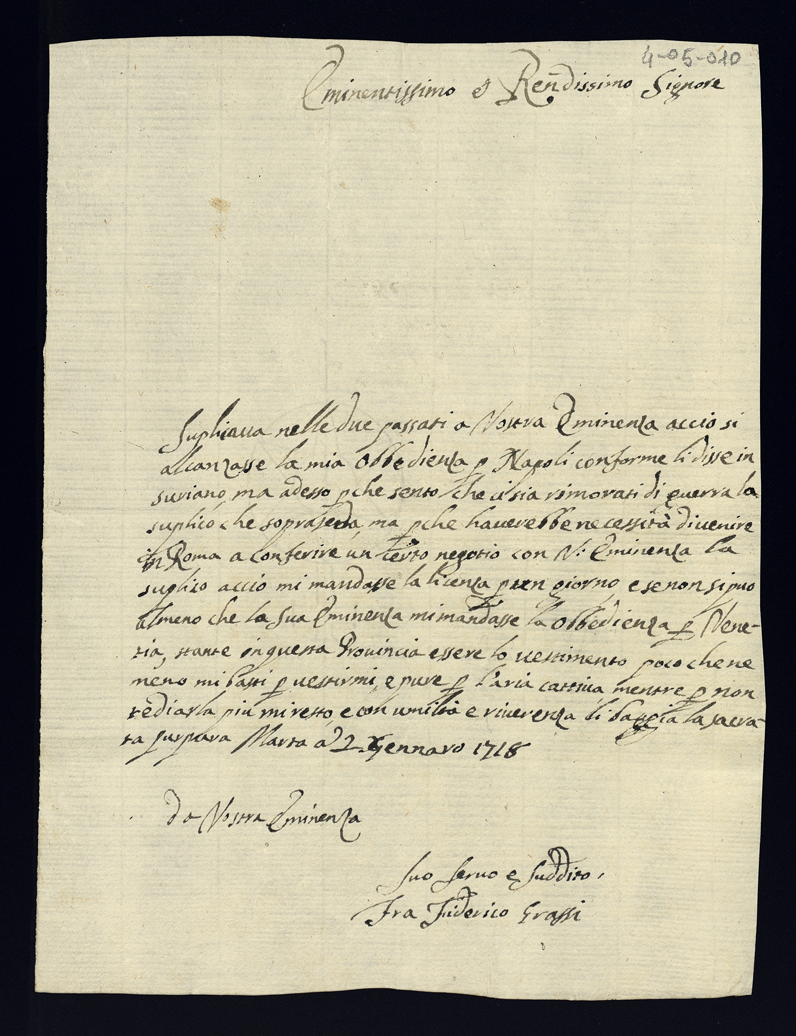 4-05-010
Eminentissimo e Rendissimo Signore
Supliaua nelle due passati a Vostra Eminenza acciò si
alcanzasse la mia Obbedienza p Napoli conforme li disse in
suriano, ma adesso pche sento che ci sia rimorati di guerra la
suplico che soprasedà, ma pche hauerebbe necessità di uenire
in Roma a conferire un certo negotio con V: Eminenza la
suplizo acciò mi mandasse la licenza p un giorno e se non si può
almeno che la Sua Eminenza mi mandasse la Obbedienza p Vene-
tia, stante in questa Prouincia essere lo uestimento poco che ne
meno mi basti p uestirmi, e pure p l'aria cattiua mentre p non
tediarla più mi resto, e con umiltà e riuerenza li baggia la sacra-
ta purpura Marta a' 2 Gennaro 1718
da Vostra Eminenza
Suo Seruo e Suddito,
Fra Fiderico Grassi